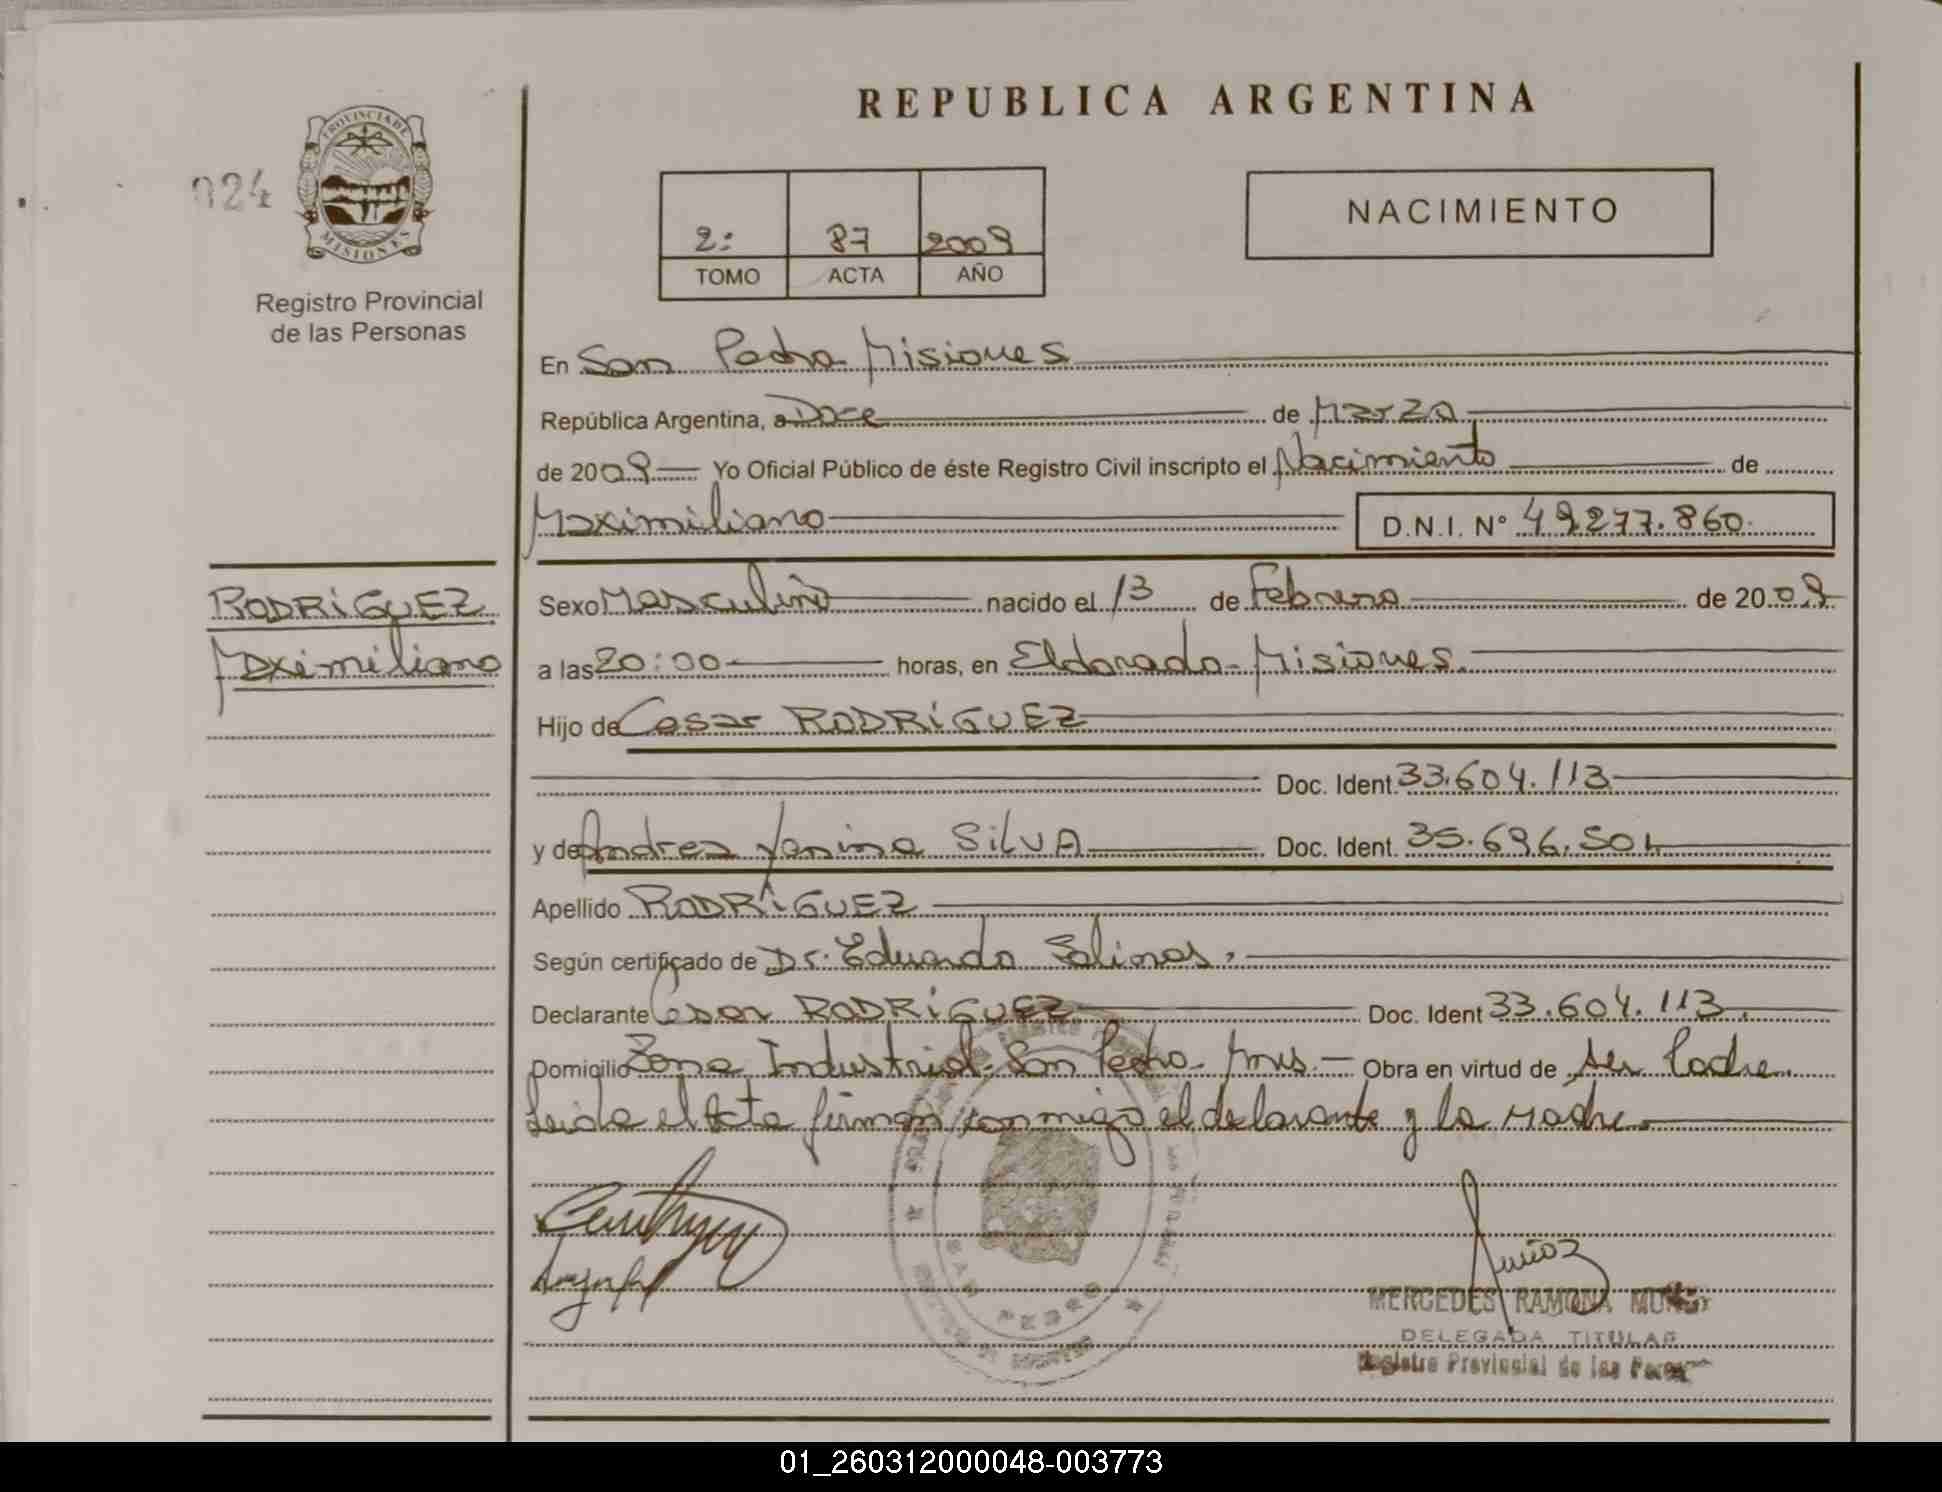 REPUBLICA ARGENTINA
024
PROVINCIA DE
MISIONES
Registro Provincial
de las Personas
2: 87 2009
TOMO ACTA AÑO
NACIMIENTO
En San Pedro Misiones
República Argentina, a Doce de Marzo
de 2009 Yo Oficial Público de éste Registro Civil inscripto el Nacimiento de
Maximiliano D.N.I. N° 49277.860
RODRÍGUEZ
Maximiliano
Sexo Masculino nacido el 13 de Febrero de 2009
a las 20:00 horas, en Eldorado Misiones.
Hijo de Cesar RODRÍGUEZ
Doc. Ident. 33.604.113
y de Andrea Yanina SILVA Doc. Ident. 35.696.501
Apellido RODRÍGUEZ
Según certificado de Dr. Eduardo Salinas.
Declarante Cesar RODRÍGUEZ Doc. Ident 33.604.113.
Domicilio Zona Industrial- San Pedro- Mnes.- Obra en virtud de ser Padre.
Leida el Acta firman conmigo el delarante y la Madre.
SAN PEDRO
Muñoz
MERCEDES RAMONA
DELEGADA TITULAR
Registro Provincial de las
01_260312000048-003773